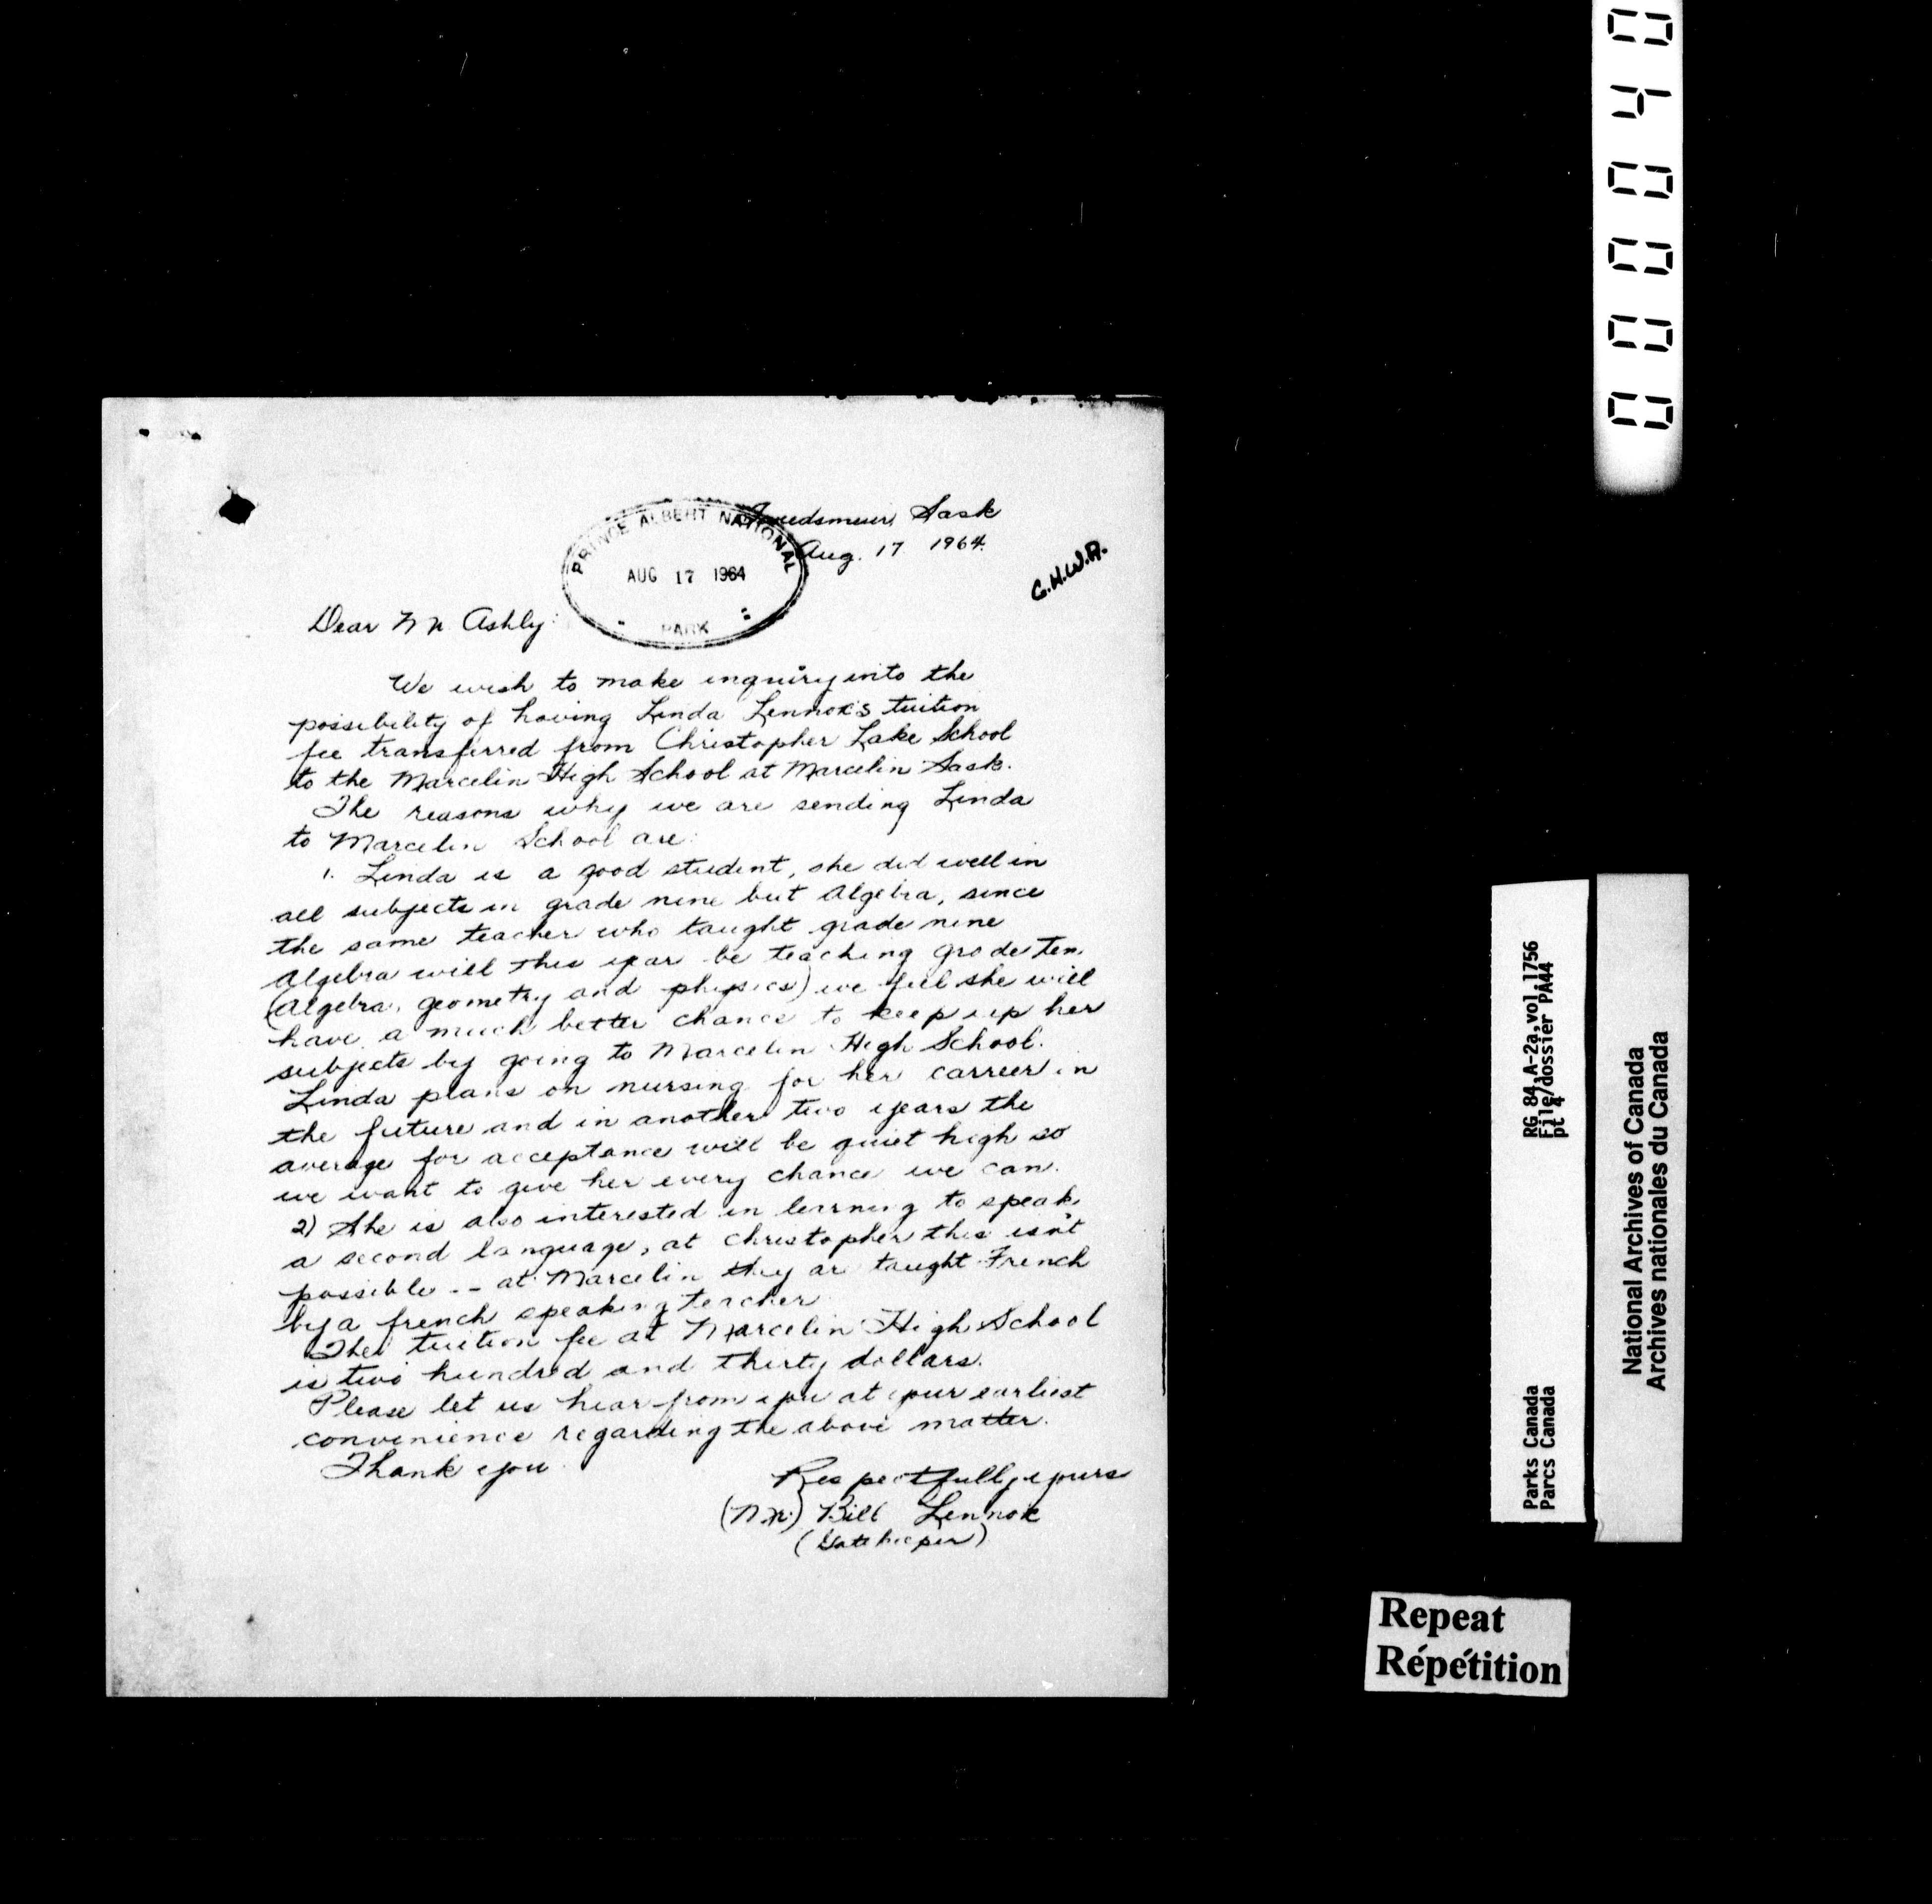 Tweedsmeur, Sask
Aug. 17 1964.
PRINCE ALBERT NATIONAL
AUG 17 1964
PARK
G.H.W.A.
Dear Mr Ashly:
We wish to make inquiry into the
possibility of having Linda Lennox's tuition
fee transferred from Christopher Lake School
to the Marcelin High School at Marcelin Sask.
The reasons why we are sending Linda
to Marcelin School are:
1. Linda is a good student, she did well in
all subjects in grade nine but Algebra, since
the same teacher who taught grade nine
Algebra will this year be teaching grade ten
(Algebra, geometry and physics) we feel she will
have a much better chance to keep up her
subjects by going to Marcelin High School.
Linda plans on nursing for her carreer in
the future and in another two years the
average for acceptance will be quiet high so
we want to give her every chance we can.
2) She is also interested in learning to speak
a second language, at Christopher this isn't
possible -- at Marcelin they ar taught French
by a french speaking teacher
The tuition fee at Marcelin High School
is two hundred and thirty dollars.
Please let us hear from you at your earliest
convenience regarding the above matter.
Thank you
Respectfully yours
(Mr.) Bill Lennox
(Gatekeeper)
RG 84, A-2a, vol. 1756
File/dossier PA44
pt 4
Parks Canada
Parcs Canada
National Archives of Canada
Archives nationales du Canada
Repeat
Répétition